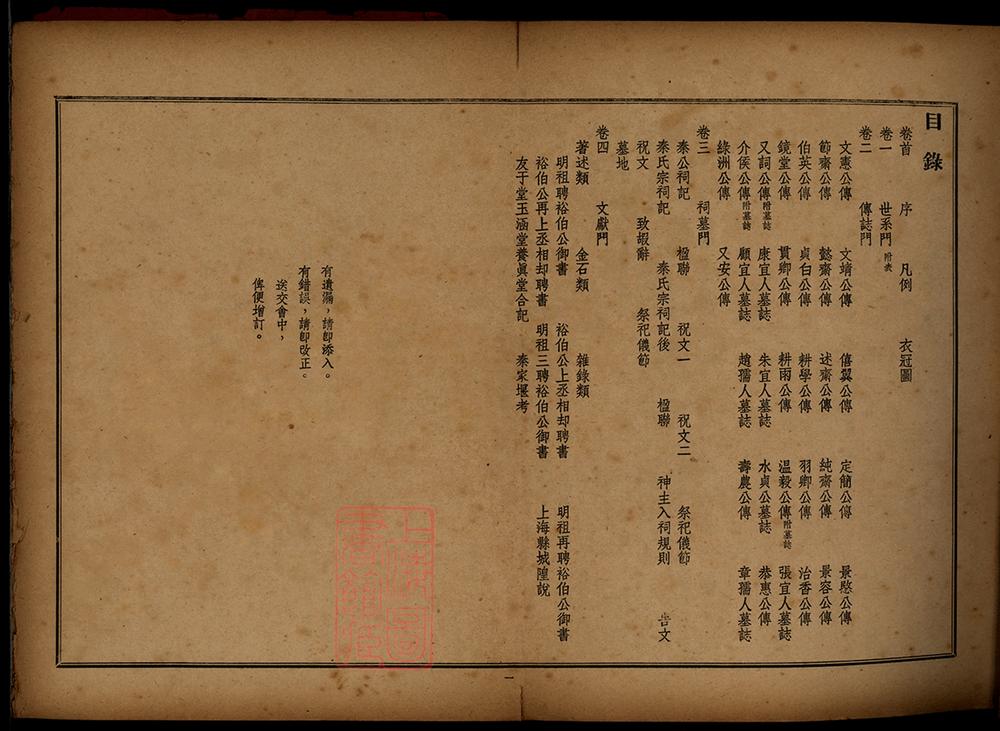 目錄
卷首 序 凡例 衣冠圖
卷一 世系門 附表
卷二 傳誌門
文憲公傳 文靖公傳 僖翼公傳 定簡公傳 景愍公傳
節齋公傳 懿齋公傳 述齋公傳 純齋公傳 景容公傳
伯英公傳 貞白公傳 耕學公傳 羽卿公傳 治香公傳
鏡堂公傳 貫卿公傳 耕雨公傳 温毅公傳附墓誌 張宜人墓誌
又詞公傳附墓誌 康宜人墓誌 朱宜人墓誌 水貞公墓誌 恭惠公傳
介侯公傳附墓誌 顧宜人墓誌 趙孺人墓誌 壽農公傳 章孺人墓誌
綠洲公傳 又安公傳
卷三 祠墓門
秦公祠記 楹聯 祝文一 祝文二 祭祀儀節
秦氏宗祠記 秦氏宗祠記後 楹聯 神主入祠規則 告文
祝文 致嘏辭 祭祀儀節
墓地
卷四 文獻門
著述類 金石類 雜錄類
明祖聘裕伯公御書 裕伯公上丞相却聘書 明祖再聘裕伯公御書
裕伯公再上丞相却聘書 明祖三聘裕伯公御書 上海縣城隍說
友于堂玉涵堂養眞堂合記 秦家堰考
有遺漏，請卽添入。
有錯誤，請卽改正。
送交會中，
俾便增訂。
一
上海圖書館藏